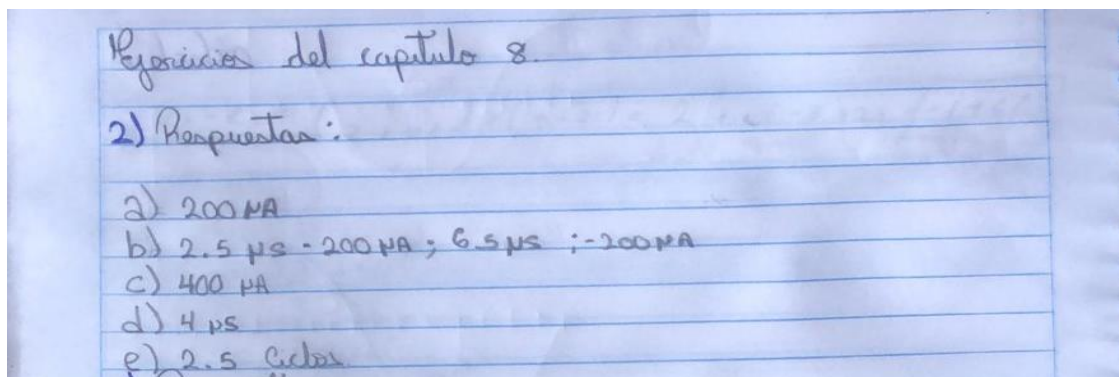 Ejercicios del capitulo 8.
2) Respuestas:
a) 200 μA
b) 2.5 μs - 200 μA ; 6.5 μs ; -200 μA
c) 400 μA
d) 4 μs
e) 2.5 Ciclos